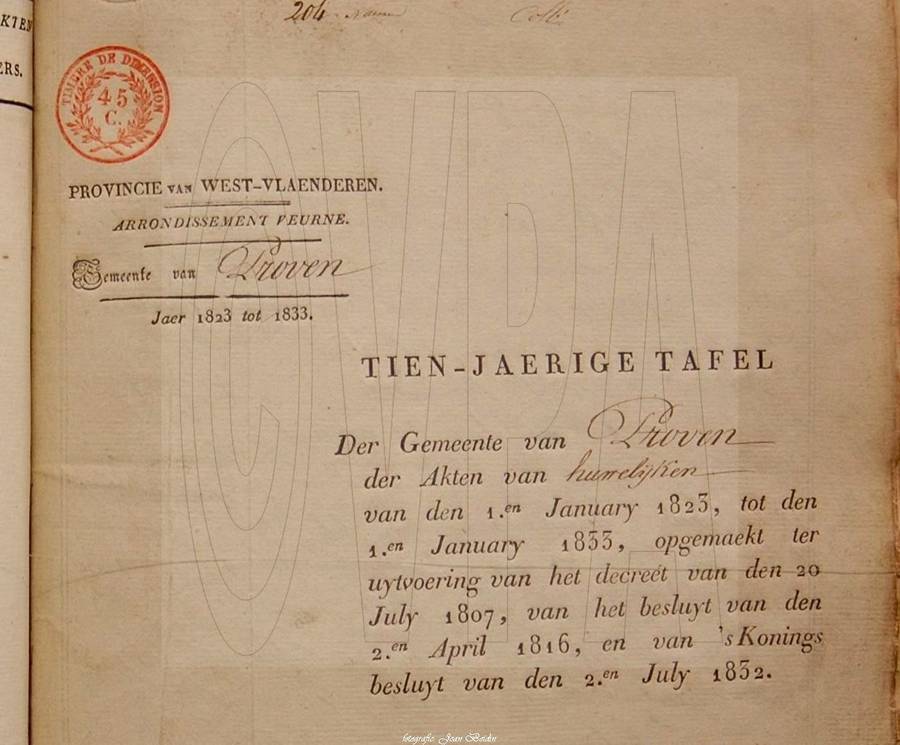 KTEN
ERS.
204
TIMBRE DE DIMENSION
45
C.
PROVINCIE VAN WEST-VLAENDEREN.
ARRONDISSEMENT VEURNE.
Gemeente van Proven
Jaer 1823 tot 1833.
TIEN-JAERIGE TAFEL
Der Gemeente van Proven
der Akten van huwelijken
van den 1.en January 1823, tot den
1.en January 1833, opgemaekt ter
uytvoering van het decreet van den 20
July 1807, van het besluyt van den
2.en April 1816, en van 's Konings
besluyt van den 2.en July 1832.
CVPA
fotografie Joan Beidin